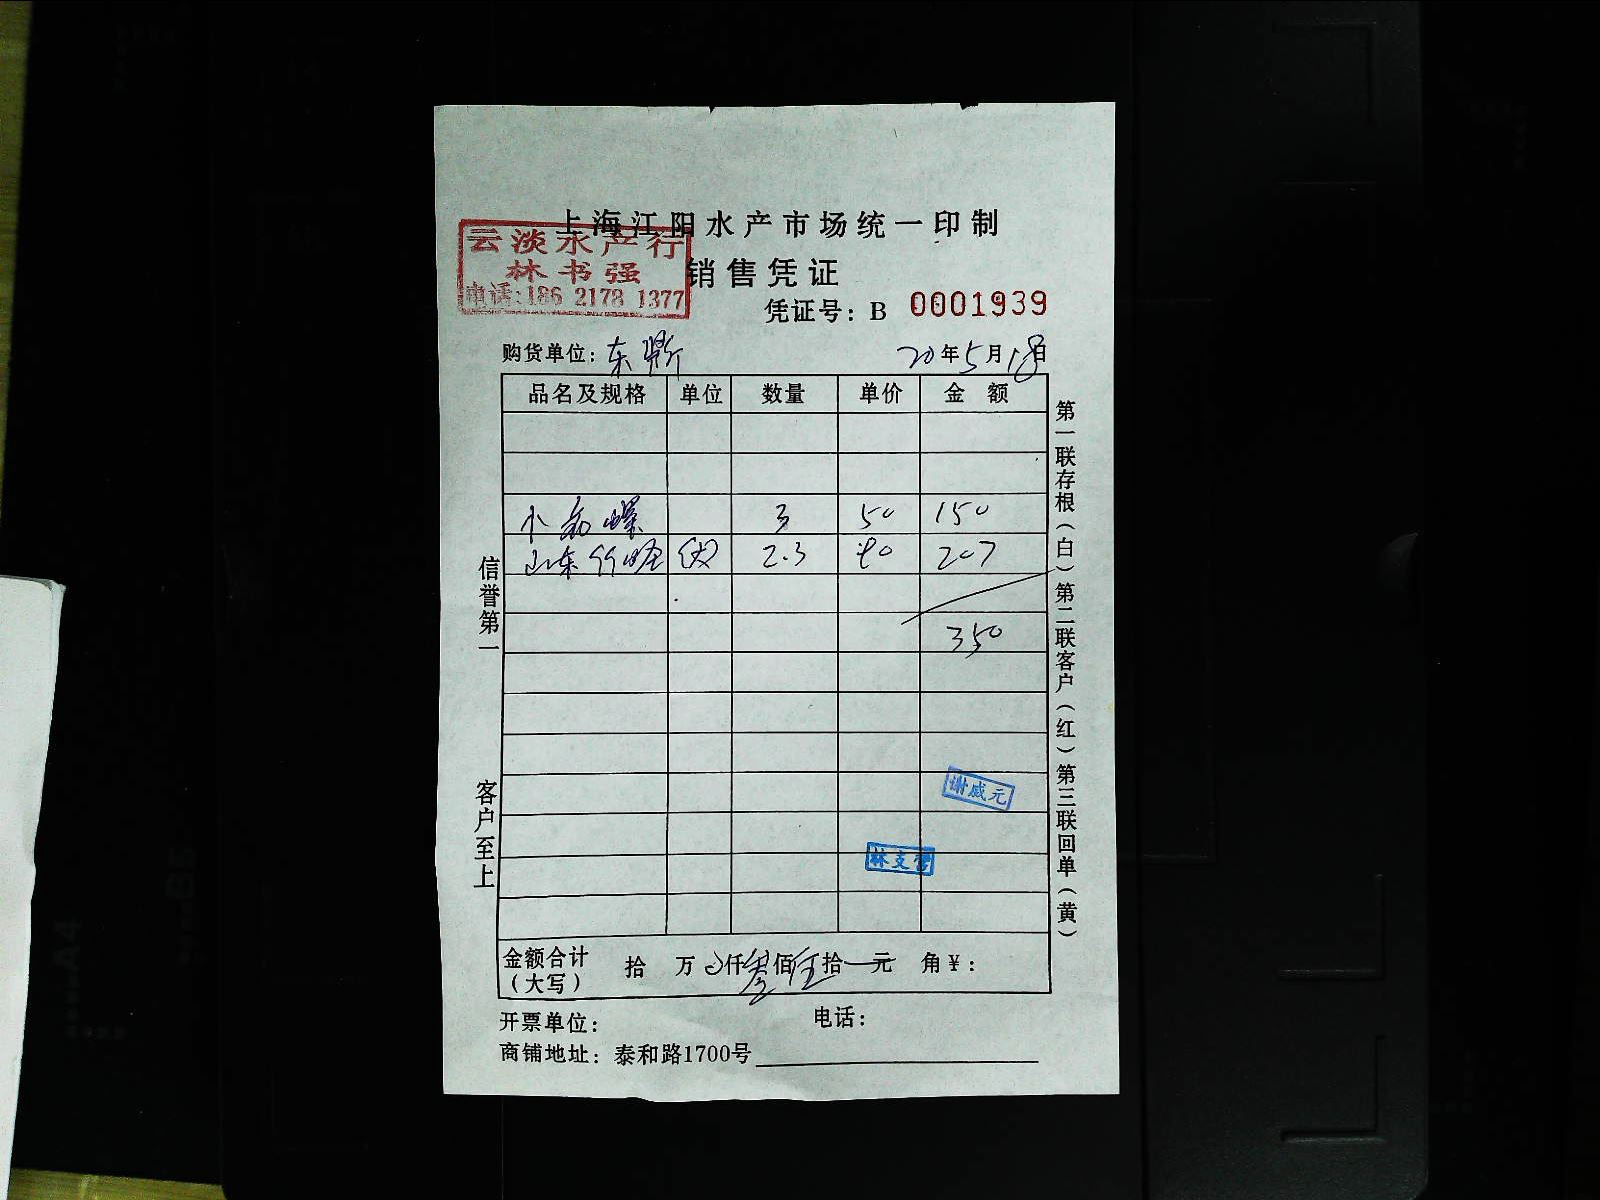 上海江阳水产市场统一印制
云淡水产行
林书强
电话:186 2178 1377
销售凭证
凭证号：B 0001939
购货单位：东
20年5月18日
品名及规格 单位 数量 单价 金额
小 螺 3 50 150
山东竹蛏 2.3 90 207
350
谢威元
林支营
金额合计（大写） 拾 万 仟叁佰伍拾 元 角¥：
开票单位： 电话：
商铺地址：泰和路1700号
信誉第一
客户至上
第一联存根（白）第二联客户（红）第三联回单（黄）
A4